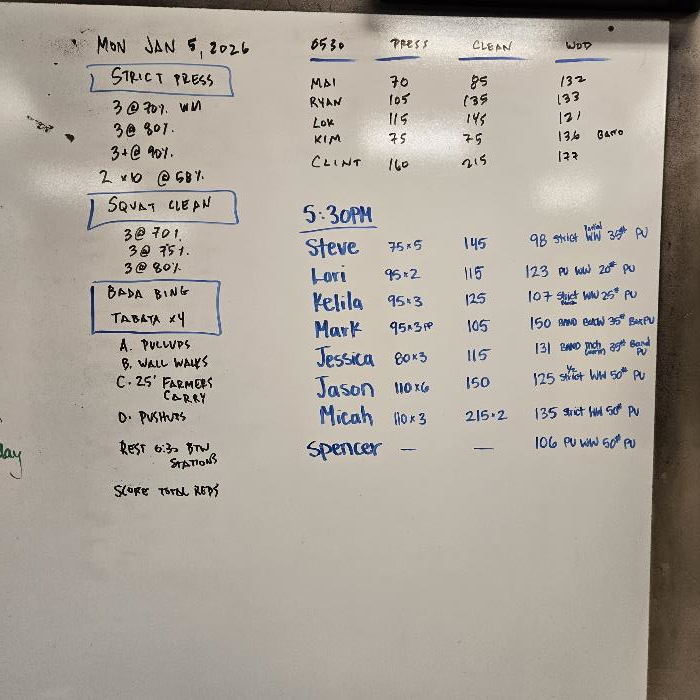 MON JAN 5, 2026
STRICT PRESS
3 @ 70%
3 @ 80%.
3+ @ 90%.
2 x 10 @ 58%
SQUAT CLEAN
3@ 70%
3@ 75%
3@ 80%
BADA BING
TABATA x4
A. PULLUPS
B. WALL WALKS
C. 25' FARMERS
CARRY
D. PUSHUPS
REST 0:30 BTW
STATIONS
SCORE TOTAL REPS
day
0530 PRESS CLEAN WOD
MAI 70 85 132
RYAN 105 135 133
LOK 115 145 121
KIM 75 75 136 BAND
CLINT 160 215 127
5:30PM
Steve 75x5 145 98 strict WW 35# PU
Lori 95x2 115 123 PU WW 20# PU
Kelila 95x3 125 107 strict WW 25# PU
Mark 95x3 PP 105 150 BAND 35# Box PU
Jessica 80x3 115 131 BAND 35# Band
PU
Jason 110x6 150 125 1/2 strict WW 50# PU
Micah 110x3 215x2 135 strict WW 50# PU
Spencer — — 106 PU WW 50# PU